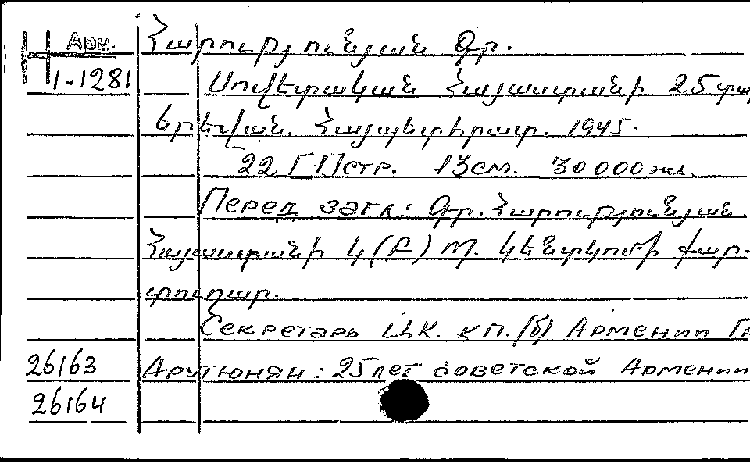 Арм. Հարությունյան Գր.
1-1281 Սովետական Հայաստանի 25
Երևան. Հայպետհրատ. 1945.
22 [ ]стр. 13см. 30000экз.
Перед загл.: Գր. Հարությունյան
Հայաստանի Կ(Բ)Պ. Կենտկոմի քար-
տուղար.
Секретарь Ц.К. КП.(б) Армении Г
26163 Арутюнян: 25 лет советской Армении
26164